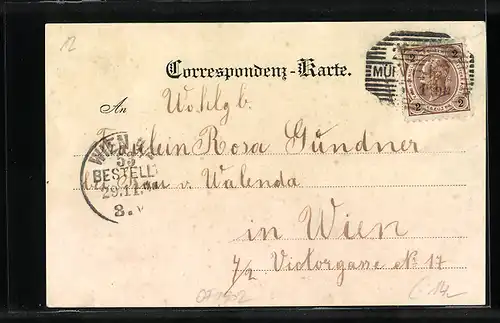 12
Correspondenz-Karte.
MÜRZ
2 2
An Wohlgb.
Fräulein Rosa Gundner
bei Frau v. Walenda
in Wien
4/2 Victorgasse № 17
WIEN
BESTELLT
29.11.
3.V